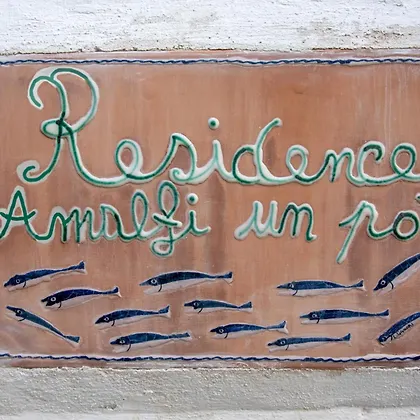 Residence
Amalfi un pò